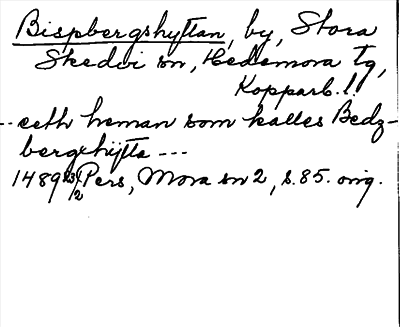 Bispbergshyttan, by, Stora
Skedvi sn, Hedemora tg,
Kopparb. l.
-- eeth heman som kalles Bedz-
bergxhijtta ---
1489 23/2 Pers, Mora sn 2, s. 85. orig.